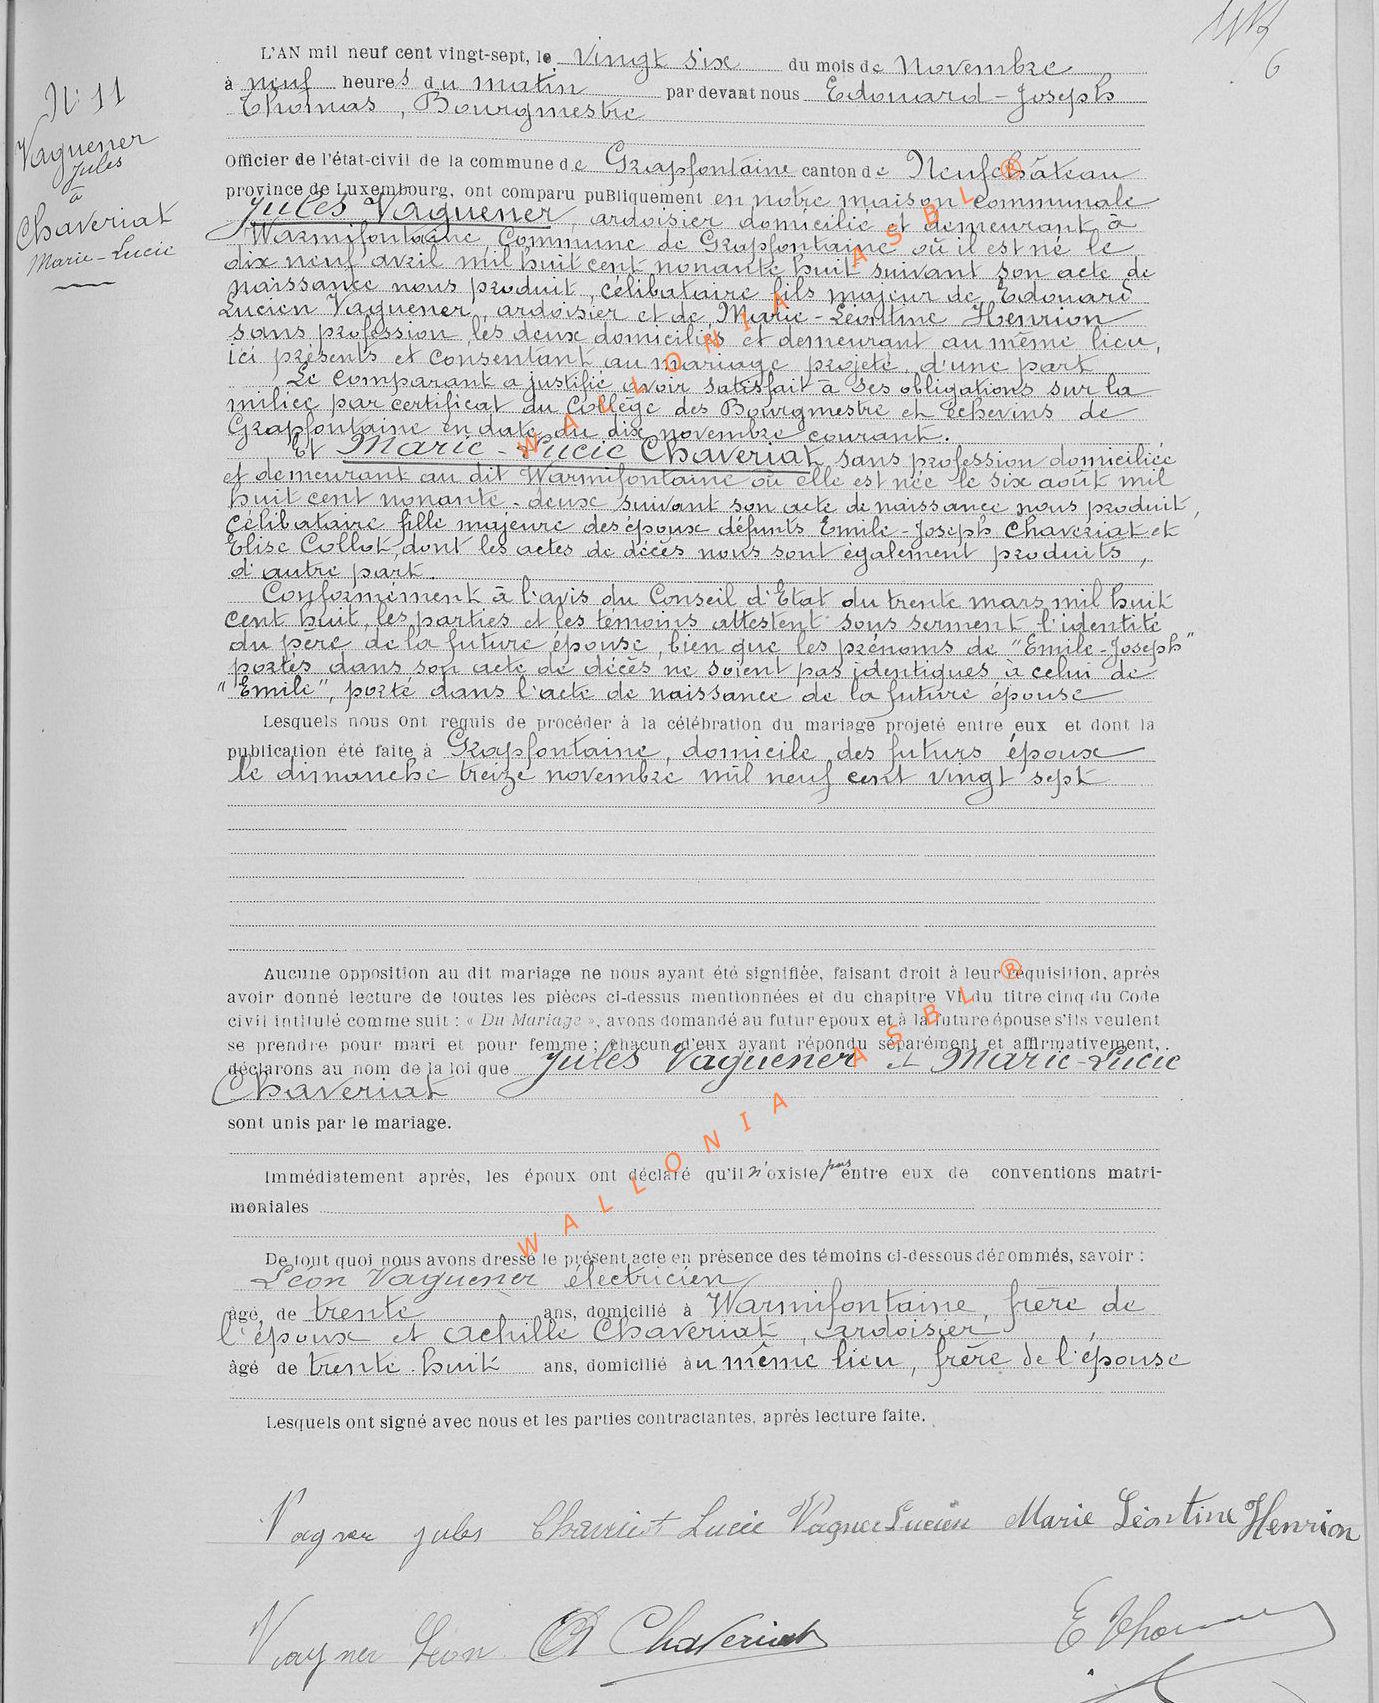 6
N° 11
Vaguener
Jules
à
Chaveriat
Marie-Lucie
L'AN mil neuf cent vingt-sept, le vingt six du mois de Novembre
à neuf heures du matin par devant nous Edouard-Joseph
Thomas, Bourgmestre
Officier de l'état-civil de la commune de Grapfontaine canton de Neufchâteau
province de Luxembourg, ont comparu publiquement en notre maison communale
Jules Vaguener, ardoisier domicilié et demeurant à
Warmifontaine, Commune de Grapfontaine où il est né le
dix neuf avril mil huit cent nonante huit suivant son acte de
naissance nous produit, célibataire fils majeur de Edouard
Lucien Vaguener, ardoisier et de Marie-Léontine Henrion
sans profession les deux domiciliés et demeurant au même lieu,
ici présents et consentant au mariage projeté, d'une part
Le comparant a justifié avoir satisfait à ses obligations sur la
milice par certificat du Collège des Bourgmestre et Echevins de
Grapfontaine en date du dix novembre courant.
Et Marie-Lucie Chaveriat, sans profession domiciliée
et demeurant au dit Warmifontaine où elle est née le six août mil
huit cent nonante-deux suivant son acte de naissance nous produit,
célibataire fille majeure des époux défunts Emile-Joseph Chaveriat et
Elise Collot dont les actes de décès nous sont également produits,
d'autre part.
Conformément à l'avis du Conseil d'Etat du trente mars mil huit
cent huit, les parties et les témoins attestent sous serment l'identité
du père de la future épouse, bien que les prénoms de "Emile-Joseph"
portés dans son acte de décès ne soient pas identiques à celui de
"Emile", porté dans l'acte de naissance de la future épouse
Lesquels nous ont requis de procéder à la célébration du mariage projeté entre eux et dont la
publication été faite à Grapfontaine, domicile des futurs époux
le dimanche treize novembre mil neuf cent vingt sept
Aucune opposition au dit mariage ne nous ayant été signifiée, faisant droit à leur réquisition, après
avoir donné lecture de toutes les pièces ci-dessus mentionnées et du chapitre VI du titre cinq du Code
civil intitulé comme suit : « Du Mariage », avons demandé au futur epoux et à la future épouse s'ils veulent
se prendre pour mari et pour femme ; chacun d'eux ayant répondu séparément et affirmativement,
déclarons au nom de la loi que Jules Vaguener et Marie-Lucie
Chaveriat
sont unis par le mariage.
Immédiatement après, les époux ont déclaré qu'il n'existe pas entre eux de conventions matri-
moniales
De tout quoi nous avons dressé le présent acte en présence des témoins ci-dessous dénommés, savoir :
Léon Vaguener électricien
âgé, de trente ans, domicilié à Warmifontaine, frère de
l'époux et Achille Chaveriat, ardoisier,
âgé de trente-huit ans, domicilié au même lieu, frère de l'épouse
Lesquels ont signé avec nous et les parties contractantes, après lecture faite.
Vagner jules Chaveriat Lucie Vagner Lucien Marie Léontine Henrion
Vagner Léon A Chaveriat E Thomas
WALLONIA ASBL ®
WALLONIA ASBL ®